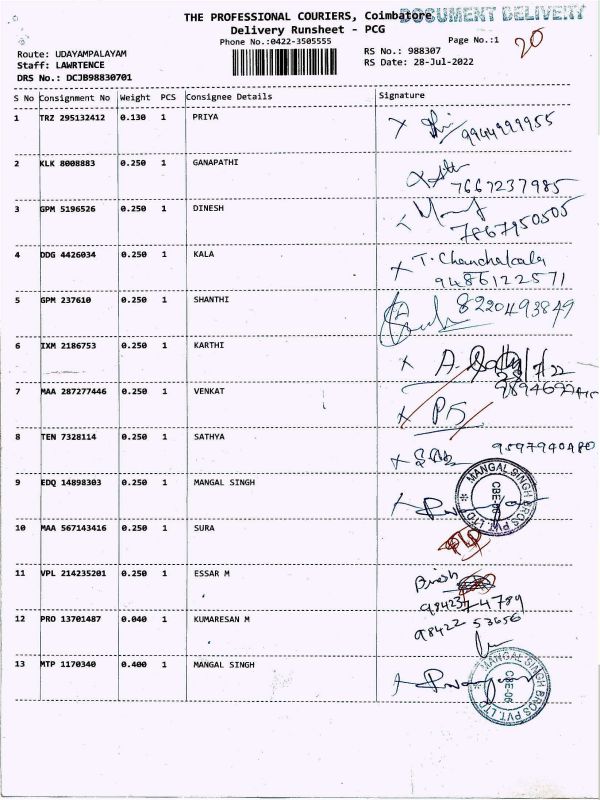 THE PROFESSIONAL COURIERS, Coimbatore
DOCUMENT DELIVERY
Delivery Runsheet - PCG
Phone No.:0422-3505555
Page No.:1
20
Route: UDAYAMPALAYAM
RS No.: 988307
Staff: LAWRTENCE
RS Date: 28-Jul-2022
DRS No.: DCJB98830701
S No Consignment No Weight PCS Consignee Details Signature
1 TRZ 295132412 0.130 1 PRIYA
9944999955
2 KLK 8008883 0.250 1 GANAPATHI
7667237985
3 GPM 5196526 0.250 1 DINESH
7867950505
4 DDG 4426034 0.250 1 KALA T. Chanchalcala
9486122571
5 GPM 237610 0.250 1 SHANTHI 8220493849
6 IXM 2186753 0.250 1 KARTHI
7 MAA 287277446 0.250 1 VENKAT
8 TEN 7328114 0.250 1 SATHYA
9 EDQ 14898303 0.250 1 MANGAL SINGH MANGAL SINGH BROS PVT. LTD CBE-06
10 MAA 567143416 0.250 1 SURA
11 VPL 214235201 0.250 1 ESSAR M
12 PRO 13701487 0.040 1 KUMARESAN M 98422 53656
13 MTP 1170340 0.400 1 MANGAL SINGH MANGAL SINGH BROS PVT. LTD CBE-06